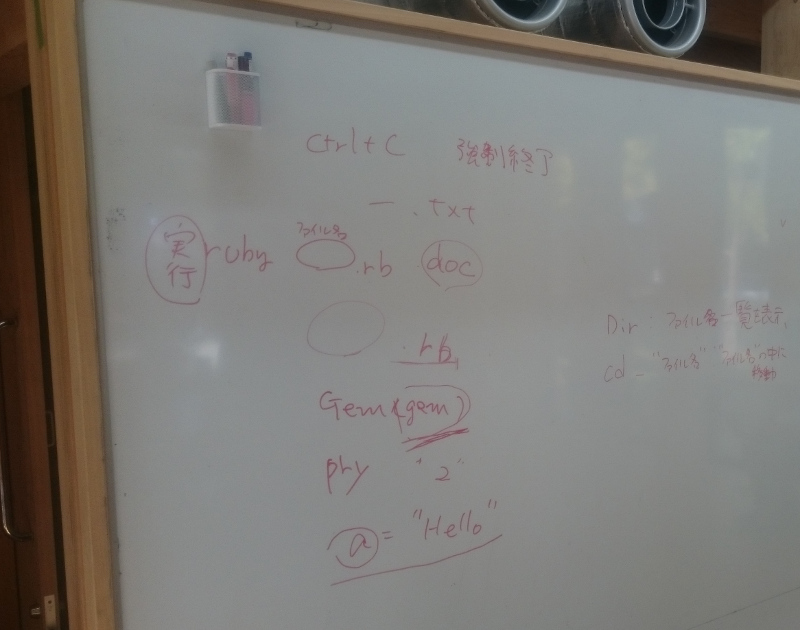 Ctrl+C 強制終了
― .txt
実行 ruby ファイル名 .rb doc
.rb
Gem(gem)
pry "2"
a = "Hello"
Dir : ファイル名一覧表示
cd _ "ファイル名" "ファイル名"の中に移動